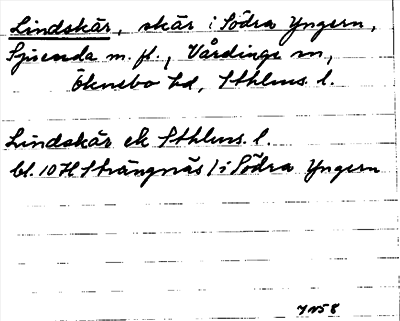 Lindskär, skär i Södra Yngern,
Sjuenda m. fl., Vårdinge sn,
Öknebo hd, Sthlms. l.
Lindskär ek Sthlms. l.
bl. 10H Strängnäs / i Södra Yngern